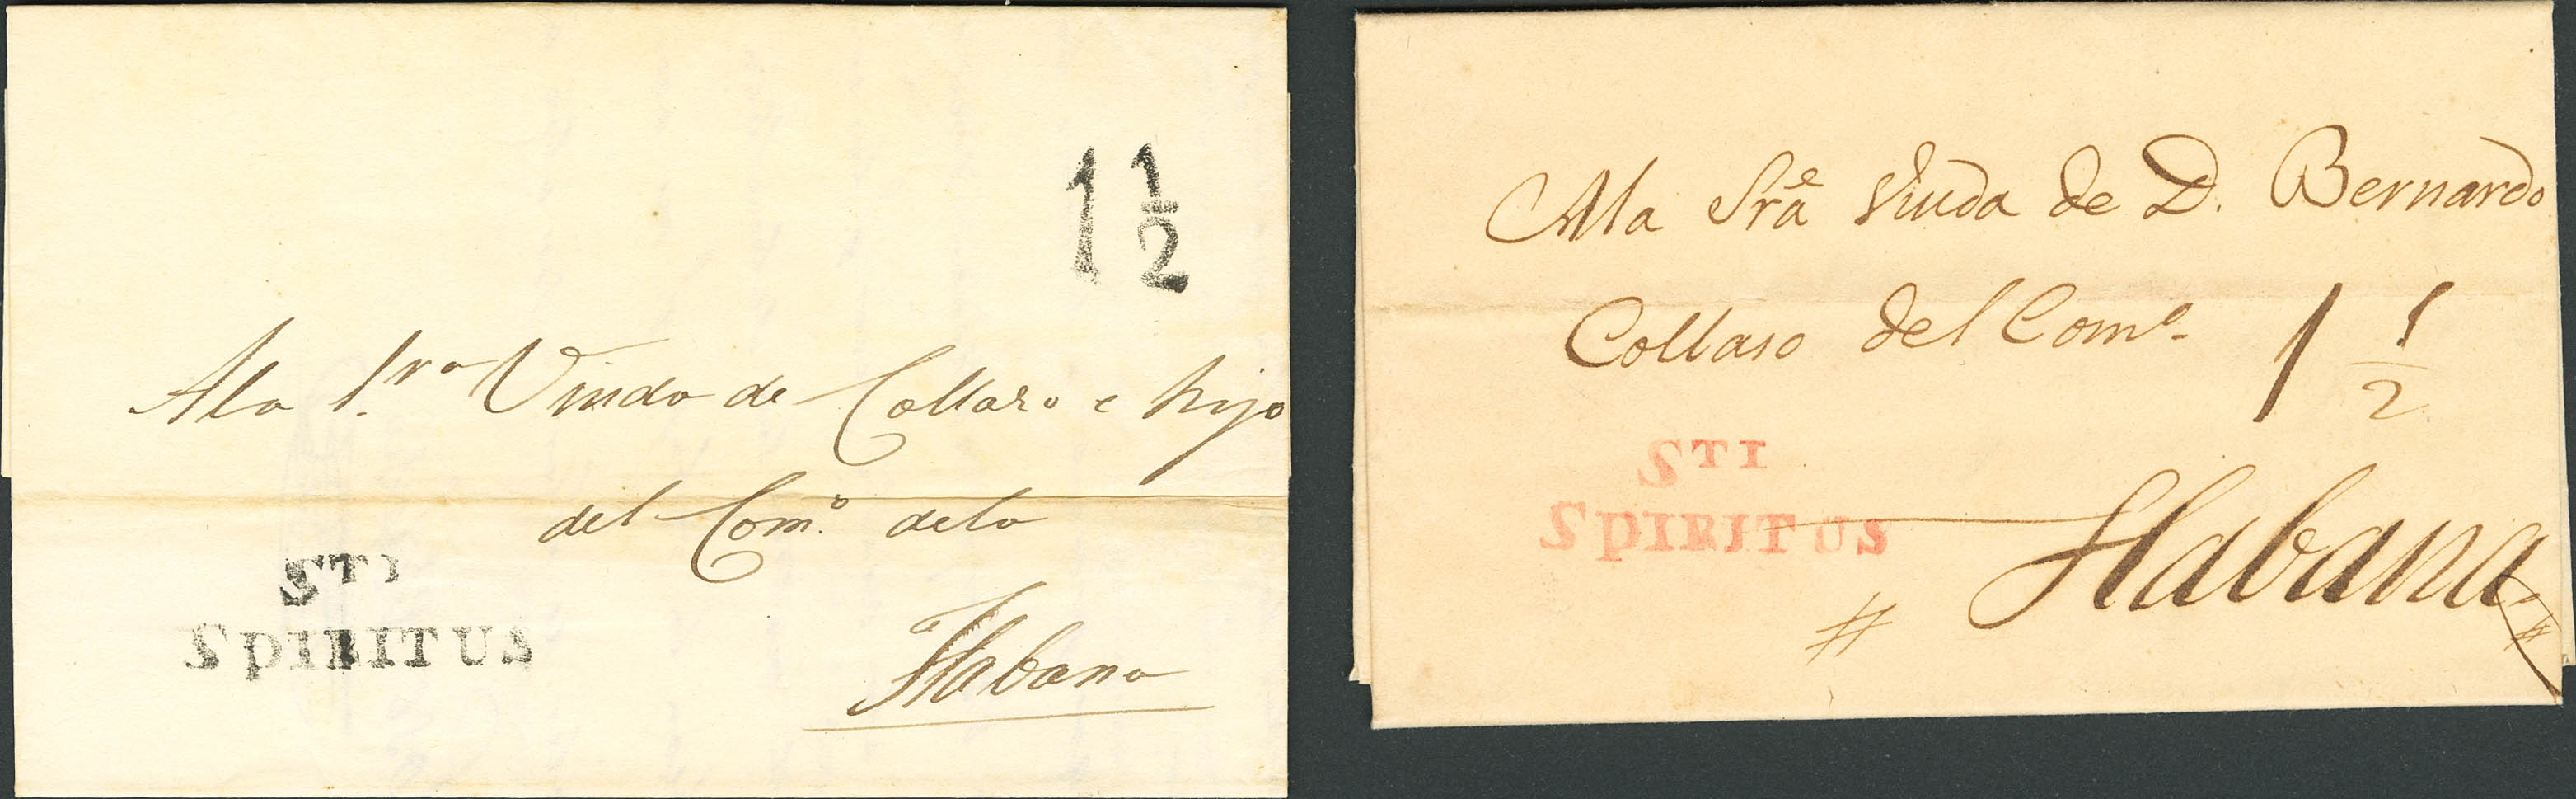 1 1/2
A la S.ra Viuda de Collazo e hijo
del Com.o de la
STI
SPIRITUS
Habana
A la Sra Viuda de D. Bernardo
Collaso del Como
1 1/2
STI
SPIRITUS
Habana
#
#